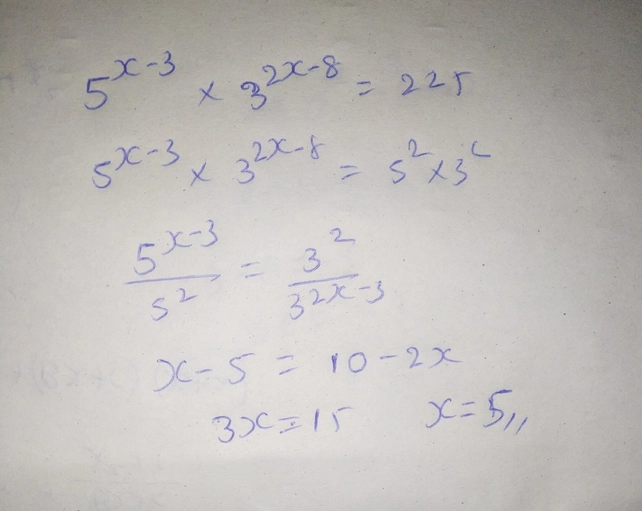 5^{x-3} × 3^{2x-8} = 225
5^{x-3} × 3^{2x-8} = 5^2 × 3^2
\frac{5^{x-3}}{5^2} = \frac{3^2}{3^{2x-3}}
x-5 = 10-2x
3x=15 x=5,,